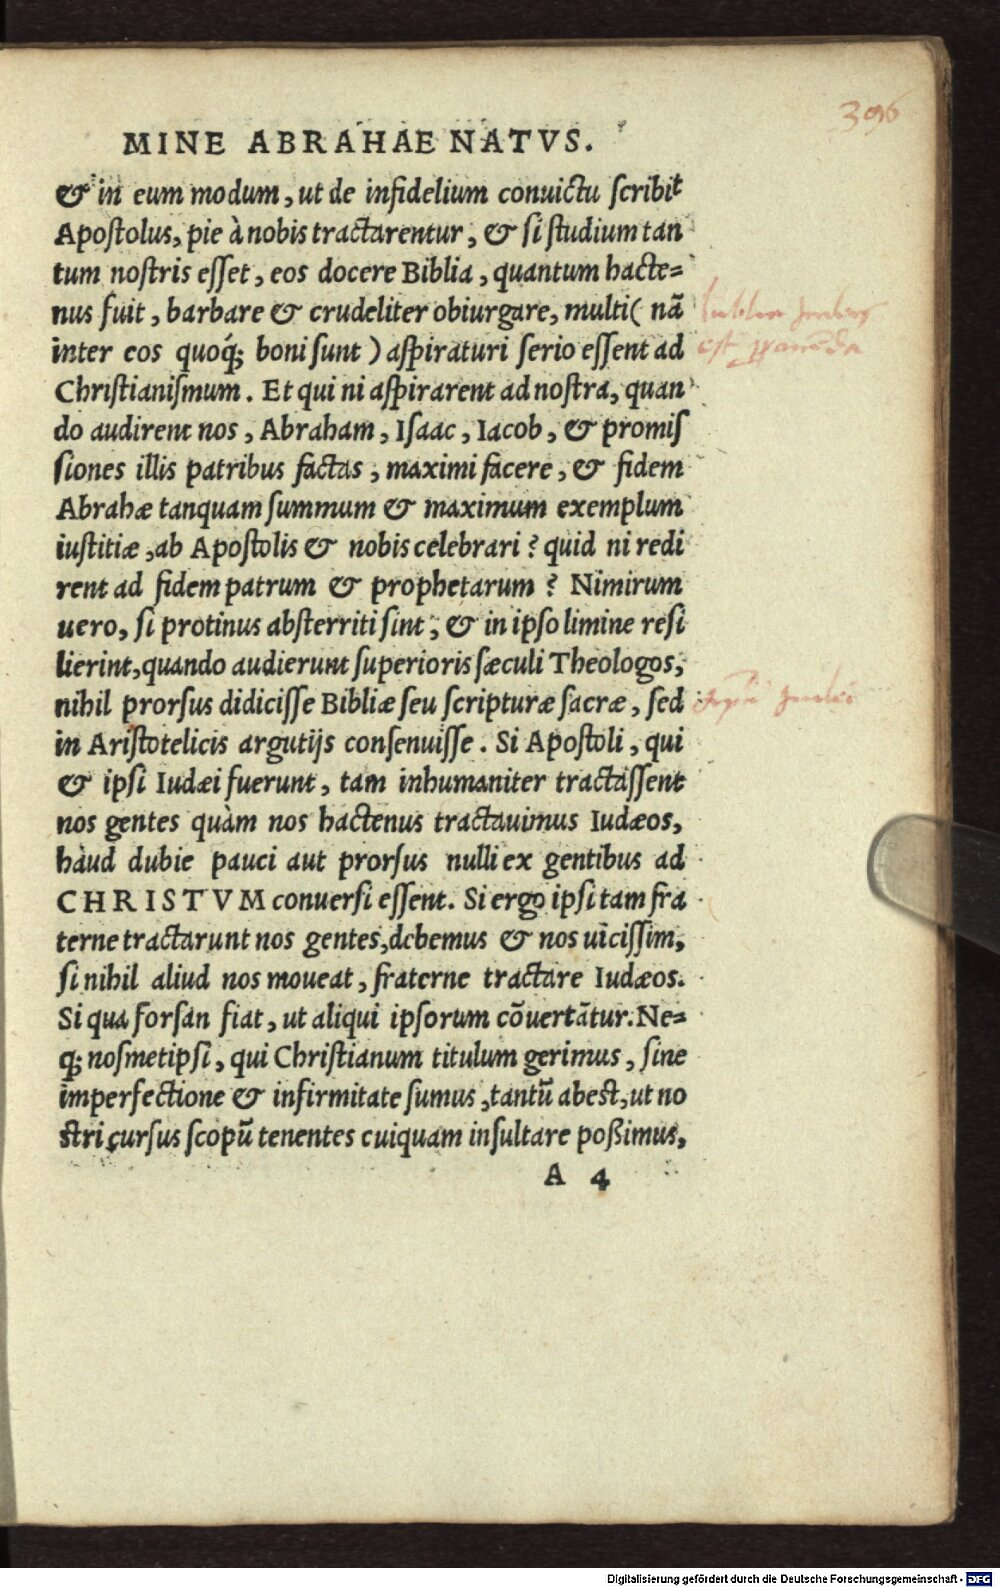 396
MINE ABRAHAE NATVS.
& in eum modum, ut de infidelium conuictu scribit
Apostolus, pie à nobis tractarentur, & si studium tan
tum nostris esset, eos docere Biblia, quantum hacte=
nus fuit, barbare & crudeliter obiurgare, multi ( nā
inter eos quoq́; boni sunt ) aspiraturi serio essent ad
Christianismum. Et qui ni aspirarent ad nostra, quan
do audirent nos, Abraham, Isaac, Iacob, & promis
siones illis patribus factas, maximi facere, & fidem
Abrahæ tanquam summum & maximum exemplum
iustitiæ, ab Apostolis & nobis celebrari? quid ni redi
rent ad fidem patrum & prophetarum? Nimirum
uero, si protinus absterriti sint, & in ipso limine resi
lierint, quando audierunt superioris sæculi Theologos,
nihil prorsus didicisse Bibliæ seu scripturæ sacræ, sed
in Aristotelicis argutijs consenuisse. Si Apostoli, qui
& ipsi Iudæi fuerunt, tam inhumaniter tractassent
nos gentes quàm nos hactenus tractauimus Iudæos,
haud dubie pauci aut prorsus nulli ex gentibus ad
CHRISTVM conuersi essent. Si ergo ipsi tam fra
terne tractarunt nos gentes, debemus & nos uicissim,
si nihil aliud nos moueat, fraterne tractare Iudæos.
Si qua forsan fiat, ut aliqui ipsorum cōuertātur. Ne=
q; nosmetipsi, qui Christianum titulum gerimus, sine
imperfectione & infirmitate sumus, tantū abest, ut no
stri cursus scopū tenentes cuiquam insultare poßimus,
A 4
Digitalisierung gefördert durch die Deutsche Forschungsgemeinschaft - DFG